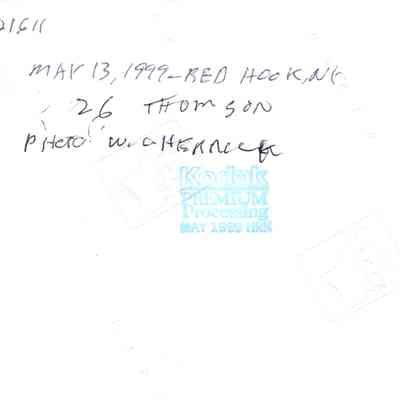 21611
MAY 13, 1999-RED HOOK, NY
26 THOMSON
PHOTO: W.
Kodak
PREMIUM
Processing
MAY 1999 HRK